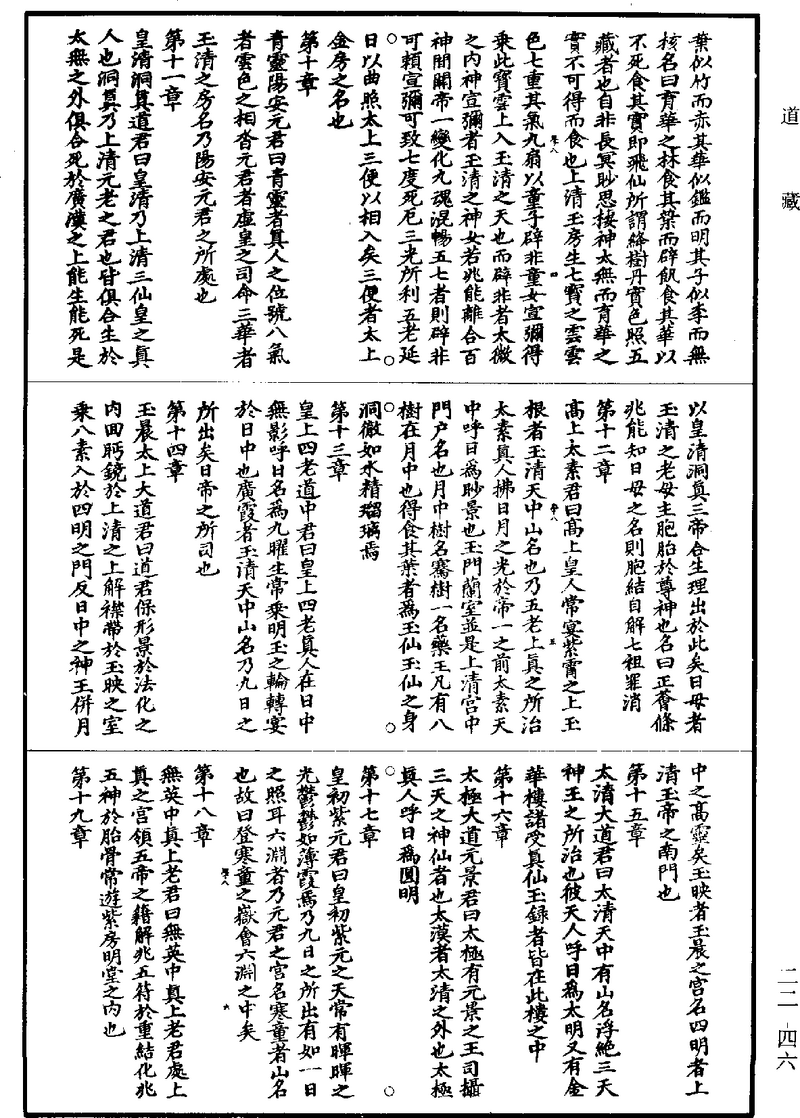 道藏
葉似竹而赤其華似鑑而明其子似李而無
核名曰育華之林食其葉而辟飢食其華以
不死食其實即飛仙所謂絳樹丹實色照五
藏者也自非長冥眇思接神太無而育華之
實不可得而食也上清玉房生七寶之雲雲
色七重其氣九扇以童子辟非童女宣彌得
乘此寶雲上入玉清之天也而辟非者太微
之内神宣彌者玉清之神女若兆能離合百
神開關帝一變化九魂混暢五七者則辟非
可賴宣彌可致七度死厄三光所利五老延
日以曲照太上三便以相入矣三便者太上
金房之名也
第十章
青靈陽安元君曰青靈者真人之位號八氣
者雲色之相沓元君者虛皇之司命三華者
玉清之房名乃陽安元君之所處也
第十一章
皇清洞真道君曰皇清乃上清三仙皇之真
人也洞真乃上清元老之君也皆俱合生於
太無之外俱合死於廣漠之上能生能死是
以皇清洞真三帝合生理出於此矣日母者
玉清之老母主胞胎於尊神也名曰正薈條
兆能知日母之名則胞結自解七祖罪消
第十二章
高上太素君曰高上皇人常宴紫霄之上玉
根者玉清天中山名也乃五老上真之所治
太素真人拂日月之光於帝一之前太素天
中呼日為眇景也玉門蘭室並是上清宮中
門户名也月中樹名騫樹一名藥王凡有八
樹在月中也得食其葉者為玉仙玉仙之身
洞徹如水精瑠璃焉
第十三章
皇上四老道中君曰皇上四老真人在日中
無影呼日名為九曜生常乘明玉之輪轉宴
於日中也廣霞者玉清天中山名乃九日之
所出矣日帝之所司也
第十四章
玉晨太上大道君曰道君保形景於法化之
内田眄鏡於上清之上解襟帶於玉映之室
乘八素入於四明之門反日中之神王併月
中之高靈矣玉映者玉晨之宮名四明者上
清玉帝之南門也
第十五章
太清大道君曰太清天中有山名浮絶三天
神王之所治也彼天人呼日為太明又有金
華樓諸受真仙玉録者皆在此樓之中
第十六章
太極大道元景君曰太極有元景之王司攝
三天之神仙者也太漠者太清之外也太極
真人呼日為圓明
第十七章
皇初紫元君曰皇初紫元之天常有暉暉之
光鬱鬱如薄霞焉乃九日之所出有如一日
之照耳六淵者乃元君之宮名寒童者山名
也故曰登寒童之嶽會六淵之中矣
第十八章
無英中真上老君曰無英中真上老君處上
真之宮領五帝之籍解兆五符於重結化兆
五神於胎骨常遊紫房明堂之内也
第十九章
二二-四六